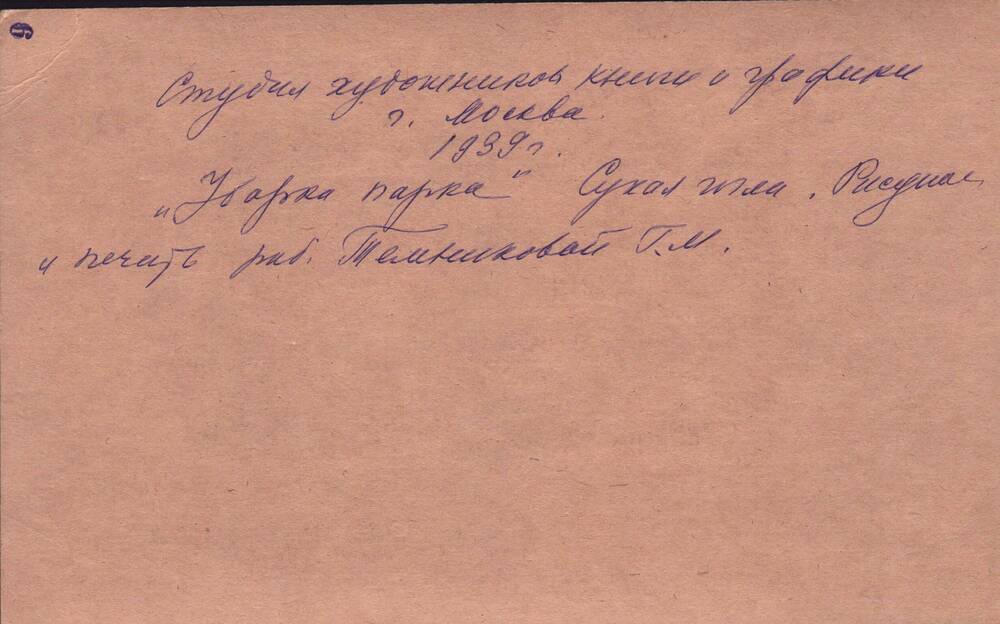 9
Студия художников книги и графики
г. Москва.
1939 г.
„Уборка парка" Сухая игла. Рисунок
и печать раб. Темниковой Г.М.